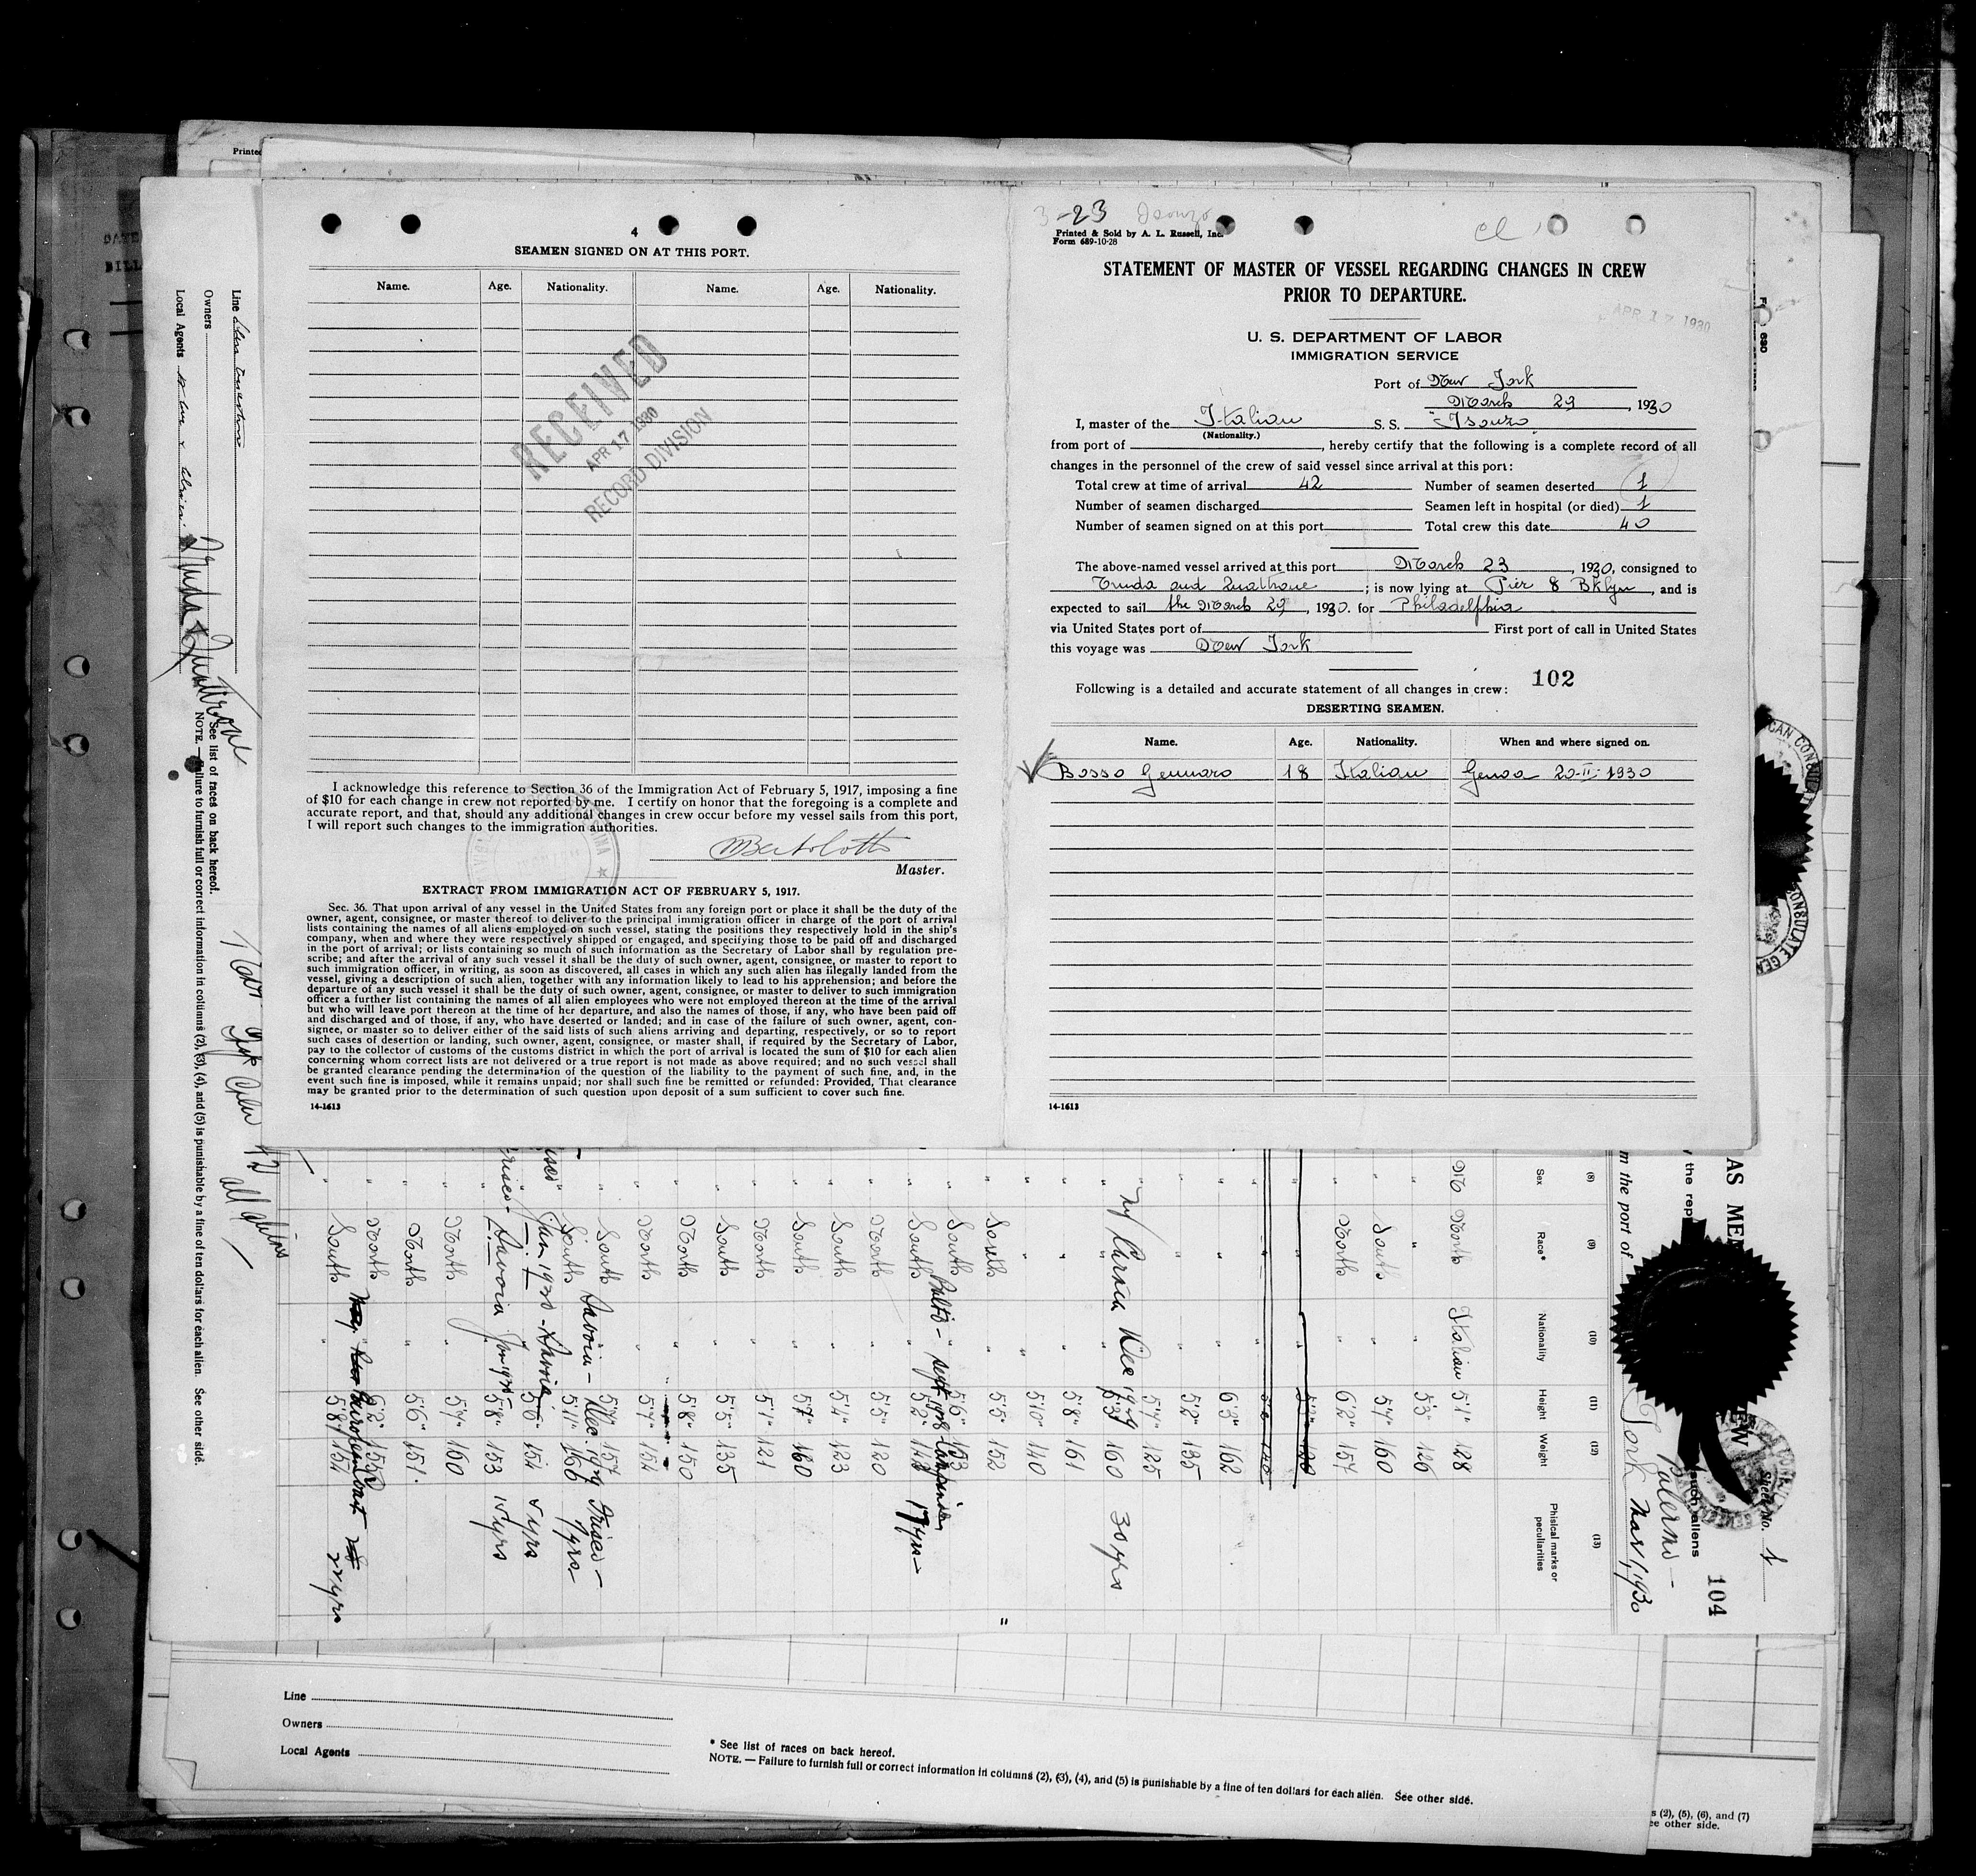 Printed
4
SEAMEN SIGNED ON AT THIS PORT.
Name. Age. Nationality. Name. Age. Nationality.
RECEIVED
APR 17 1930
RECORD DIVISION
I acknowledge this reference to Section 36 of the Immigration Act of February 5, 1917, imposing a fine
of $10 for each change in crew not reported by me. I certify on honor that the foregoing is a complete and
accurate report, and that, should any additional changes in crew occur before my vessel sails from this port,
I will report such changes to the immigration authorities.
Master.
EXTRACT FROM IMMIGRATION ACT OF FEBRUARY 5, 1917.
Sec. 36. That upon arrival of any vessel in the United States from any foreign port or place it shall be the duty of the
owner, agent, consignee, or master thereof to deliver to the principal immigration officer in charge of the port of arrival
lists containing the names of all aliens employed on such vessel, stating the positions they respectively hold in the ship's
company, when and where they were respectively shipped or engaged, and specifying those to be paid off and discharged
in the port of arrival; or lists containing so much of such information as the Secretary of Labor shall by regulation pre-
scribe; and after the arrival of any such vessel it shall be the duty of such owner, agent, consignee, or master to report to
such immigration officer, in writing, as soon as discovered, all cases in which any such alien has illegally landed from the
vessel, giving a description of such alien, together with any information likely to lead to his apprehension; and before the
departure of any such vessel it shall be the duty of such owner, agent, consignee, or master to deliver to such immigration
officer a further list containing the names of all alien employees who were not employed thereon at the time of the arrival
but who will leave port thereon at the time of her departure, and also the names of those, if any, who have been paid off
and discharged and of those, if any, who have deserted or landed; and in case of the failure of such owner, agent, con-
signee, or master so to deliver either of the said lists of such aliens arriving and departing, respectively, or so to report
such cases of desertion or landing, such owner, agent, consignee, or master shall, if required by the Secretary of Labor,
pay to the collector of customs of the customs district in which the port of arrival is located the sum of $10 for each alien
concerning whom correct lists are not delivered or a true report is not made as above required; and no such vessel shall
be granted clearance pending the determination of the question of the liability to the payment of such fine, and, in the
event such fine is imposed, while it remains unpaid; nor shall such fine be remitted or refunded: Provided, That clearance
may be granted prior to the determination of such question upon deposit of a sum sufficient to cover such fine.
14-1613
3-23 Isonzo
Printed & Sold by A. L. Russell, Inc.
Form 689-10-28
STATEMENT OF MASTER OF VESSEL REGARDING CHANGES IN CREW
PRIOR TO DEPARTURE.
APR 17 1930
U. S. DEPARTMENT OF LABOR
IMMIGRATION SERVICE
Port of New York
March 29, 1930
I, master of the Italian S. S. Isonzo
(Nationality.)
from port of , hereby certify that the following is a complete record of all
changes in the personnel of the crew of said vessel since arrival at this port:
Total crew at time of arrival 42 Number of seamen deserted 1
Number of seamen discharged Seamen left in hospital (or died) 1
Number of seamen signed on at this port Total crew this date 40
The above-named vessel arrived at this port March 23, 1930, consigned to
Truda and ; is now lying at Pier 8 Bklyn, and is
expected to sail the March 29, 1930. for Philadelphia
via United States port of First port of call in United States
this voyage was New York
102
Following is a detailed and accurate statement of all changes in crew:
DESERTING SEAMEN.
Name. Age. Nationality. When and where signed on.
Bosso Gennaro 18 Italian Genoa 20-II-1930
14-1613
Line
Owners
Local Agents
* See list of races on back hereof.
NOTE. — Failure to furnish full or correct information in columns (2), (3), (4), and (5) is punishable by a fine of ten dollars for each alien. See other side.
AS MEMBERS
Sheet No. 1
104
such aliens
Palermo
m the port of York Mar 1, 1930
(8) (9) (10) (11) (12) (13)
Sex Race* Nationality Height Weight Phisical marks or peculiarities
North Italian 5'1" 128
5'3" 126
South 5'7" 160
North 6'2" 157
6'3" 162
5'2" 135
5'7" 125
160 30 yrs
5'8" 161
5'10" 140
South 5'5" 152
South 5'6" 153
South 5'2" 17 yrs
North 5'5" 120
South 5'4" 123
South 5'7" 160
North 5'1" 121
South 5'5" 135
North 5'8" 150
North 5'7" 154
South 5'7" 157
South 5'11" 166 7 yrs
5'6" 154
5'8" 153
North 5'7" 160
North 5'6" 151
North
South 5'8"
Line
Owners
Local Agents
* See list of races on back hereof.
NOTE. — Failure to furnish full or correct information in columns (2), (3), (4), and (5) is punishable by a fine of ten dollars for each alien. See other side.
s (2), (5), (6), and (7)
ee other side.